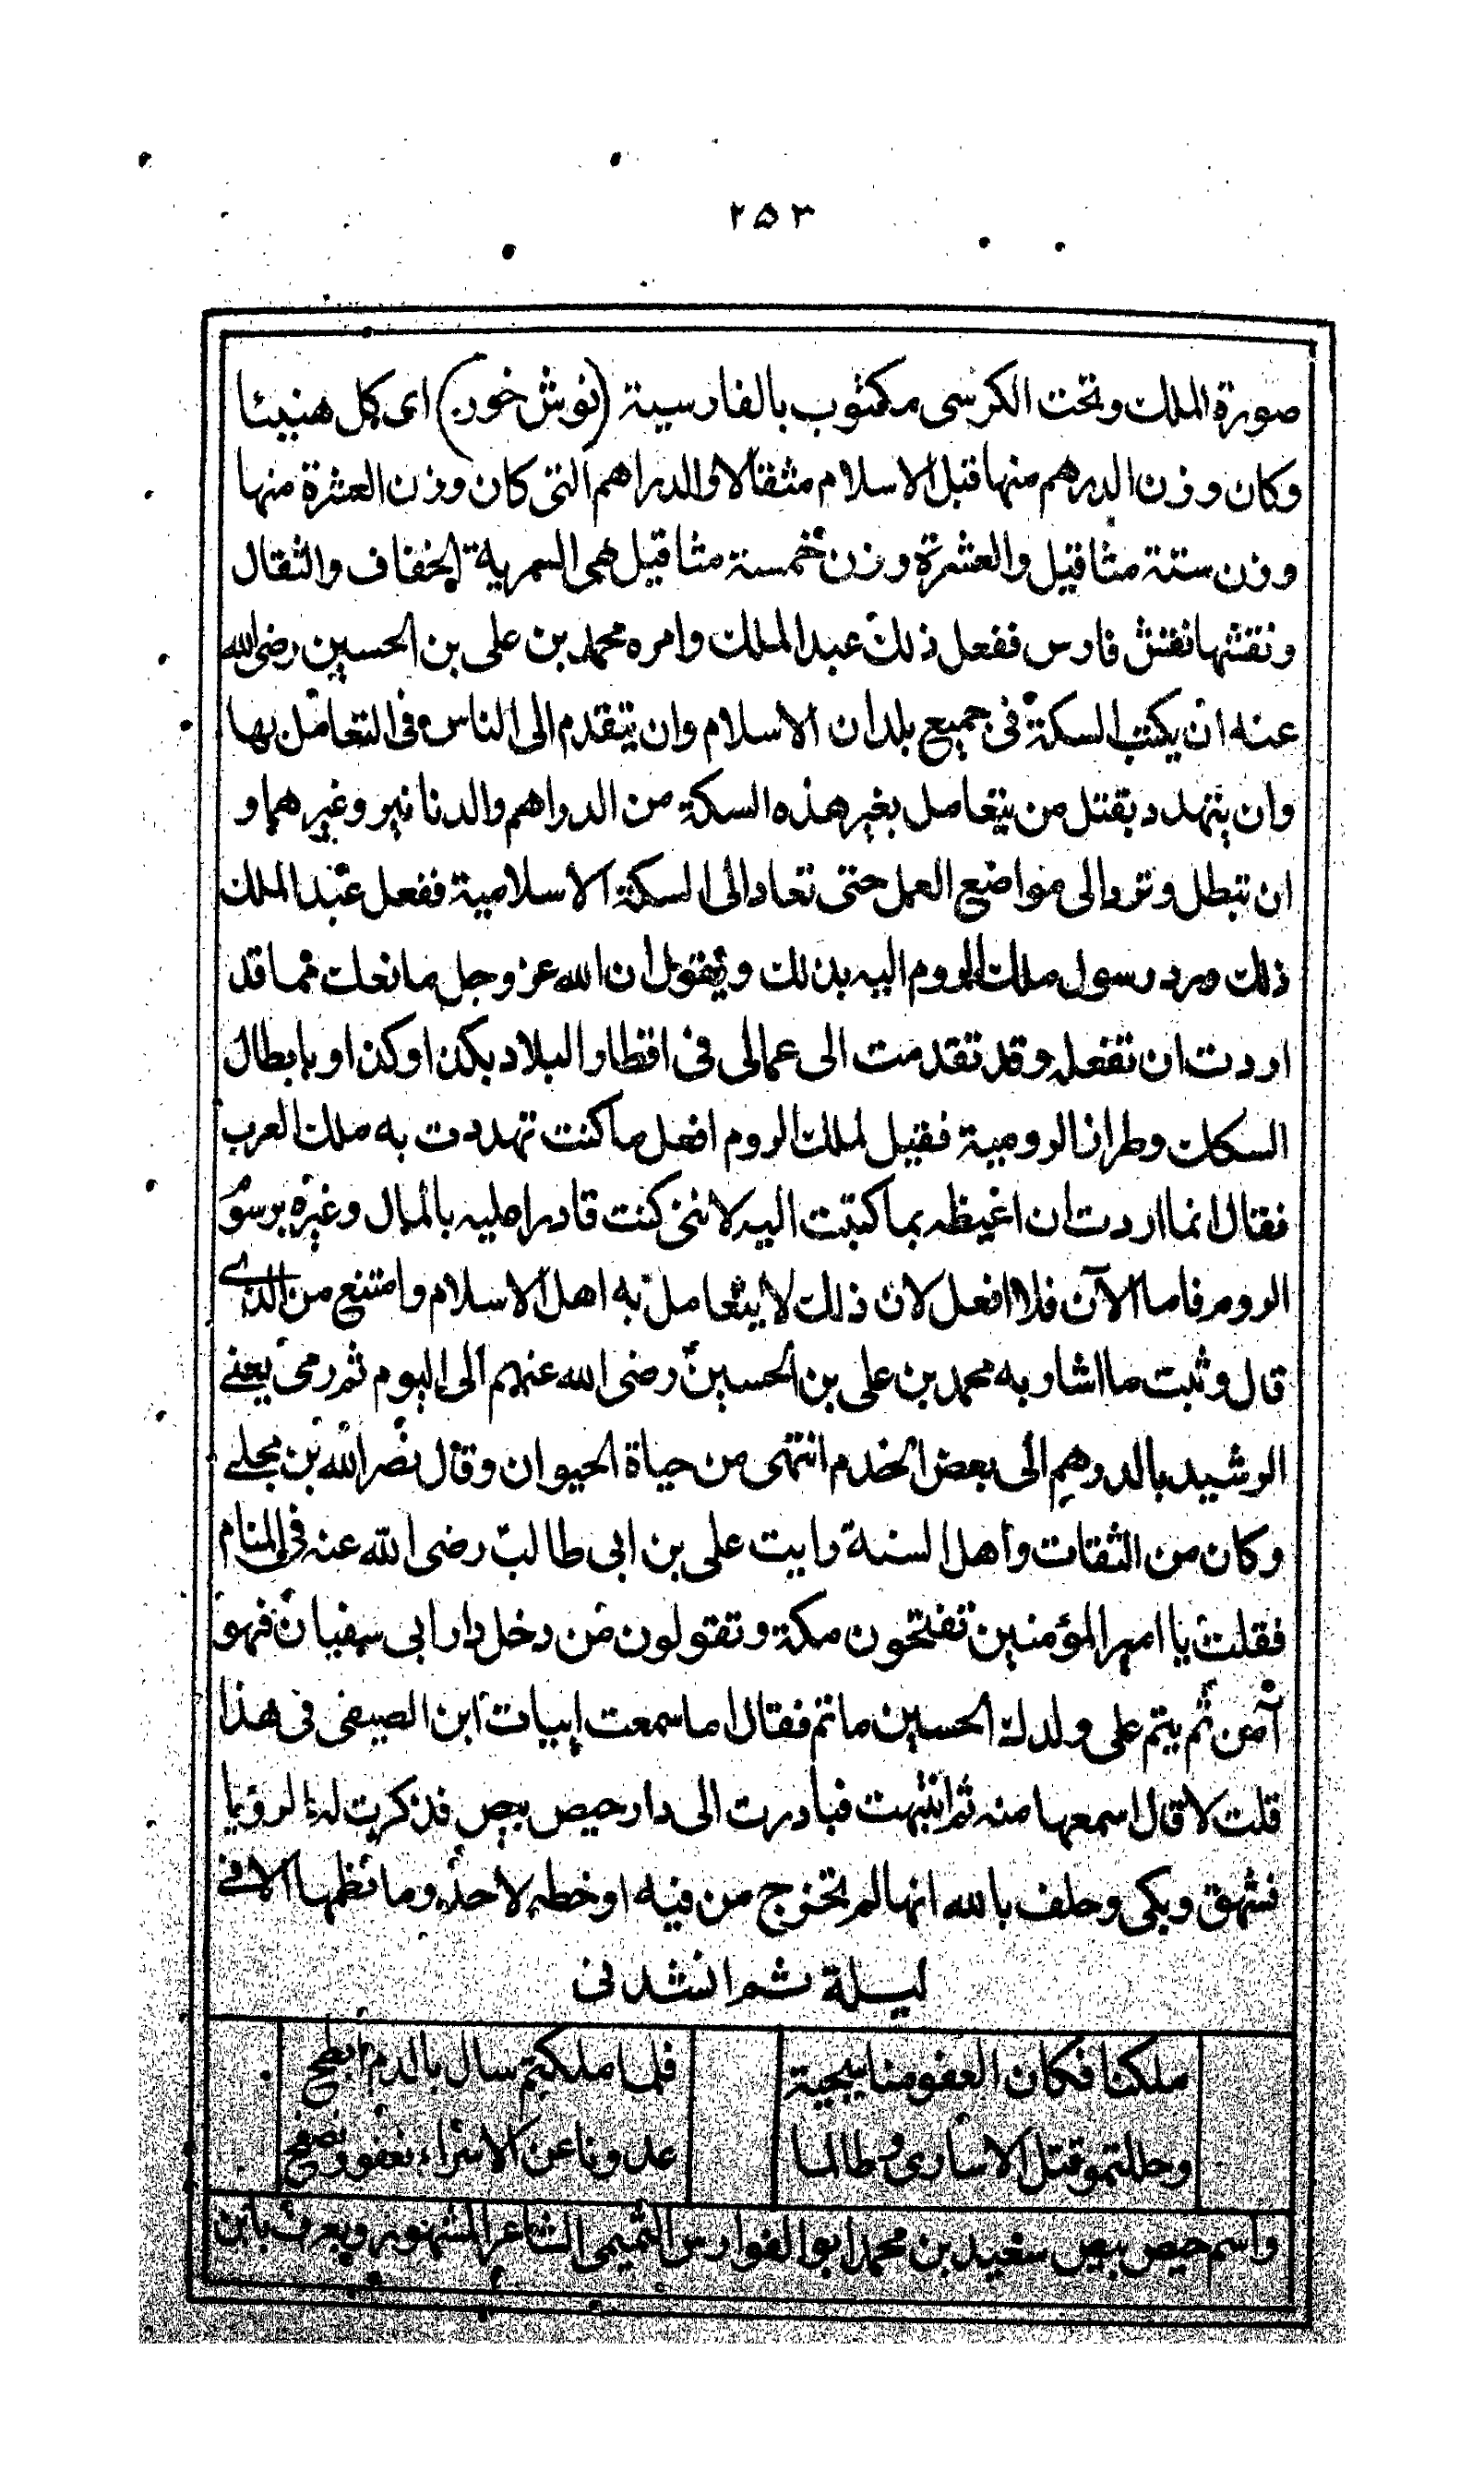 ٢٥٣
صورة الملك وتحت الكرسى مكتوب بالفارسية (نوش خور) اى كل هنيئا
وكان وزن الدرهم منها قبل الاسلام مثقالا والدراهم التى كان وزن العشرة منها
وزن ستة مثاقيل والعشرة وزن خمسة مثاقيل هى السمرية الخفاف والثقال
ونقشها نقش فارس ففعل ذلك عبد الملك وامره محمد بن على بن الحسين رضى الله
عنه ان يكتب السكة فى جميع بلدان الاسلام وان يتقدم الى الناس فى التعامل بها
وان يتهدد بقتل من يتعامل بغير هذه السكة من الدراهم والدنانير وغيرهما و
ان تبطل وترد الى مواضع العمل حتى تعاد الى السكة الاسلامية ففعل عبد الملك
ذلك ورد رسول ملك الروم اليه بذلك ويقول ان الله عز وجل مانعك مما قد
اردت ان تفعله وقد تقدمت الى عمالى فى اقطار البلاد بكذا وكذا وبابطال
السكك وطراز الرومية فقيل لملك الروم افعل ما كنت تهددت به ملك العرب
فقال انما اردت ان اغيظه بما كتبت اليه لاننى كنت قادرا عليه بالمال وغيره برسوم
الروم فاما الآن فلا افعل لان ذلك لا يتعامل به اهل الاسلام وامتنع من الذى
قال وثبت ما اشار به محمد بن على بن الحسين رضى الله عنهم الى اليوم ثم رمى يعنى
الرشيد بالدرهم الى بعض الخدم انتهى من حياة الحيوان وقال نصر الله بن مجلى
وكان من الثقات واهل السنة رايت على بن ابى طالب رضى الله عنه فى المنام
فقلت يا امير المؤمنين تفتحون مكة وتقولون من دخل دار ابى سفيان فهو
آمن ثم يتم على ولدك الحسين ما تم فقال اما سمعت ابيات ابن الصيفى فى هذا
قلت لا قال اسمعها منه ثم انتبهت فبادرت الى دار حيص بيص فذكرت له الرؤيا
فشهق وبكى وحلف بالله انها لم تخرج من فيه او خطه لاحد وما نظمها الا فى
ليلة ثم انشدنى
ملكنا فكان العفو منا سجية فلما ملكتم سال بالدم ابطح
وحللتمو قتل الاسارى وطالما عدونا عن الاسراء نعفو ونصفح
واسم حيص بيص سعيد بن محمد ابو الفوارس التميمى الشاعر المشهور ويعرف بابن